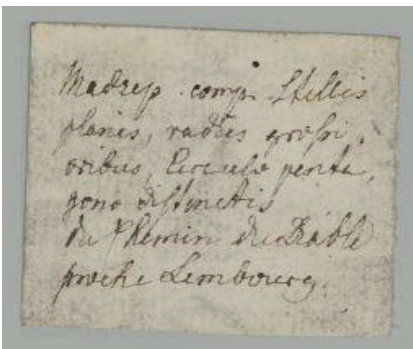 Madrep. comp. Stellis
planis, radiis grossi,
oribus, Circulo penta,
gono distinctis
du Chemin du Diable
proche Lembourg.